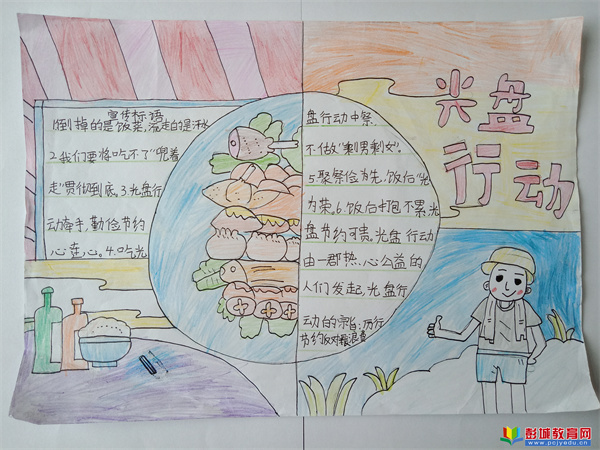 光盘
行动
宣传标语
1倒掉的是饭菜,流走的是汗水
2.我们要将吃不了"兜着
走"贯彻到底。3.光盘行
动牵手,勤俭节约
心连心。4.吃光
盘行动中祭
不做"剩男剩女"。
5聚祭俭为先,饭后"光"
为荣。6.饭后打包不累,光
盘节约可贵。光盘行动
由一群热心公益的
人们发起,光盘行
动的宗旨:厉行
节约反对粮浪费
彭城教育网
www.pcjyedu.cn